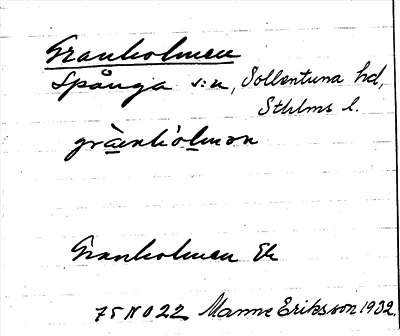 Granholmen
Spånga s:n, Sollentuna hd,
Sthlms l.
gràanhòlmən
Granholmen Ek
75 NO 22 Manne Eriksson 1932.